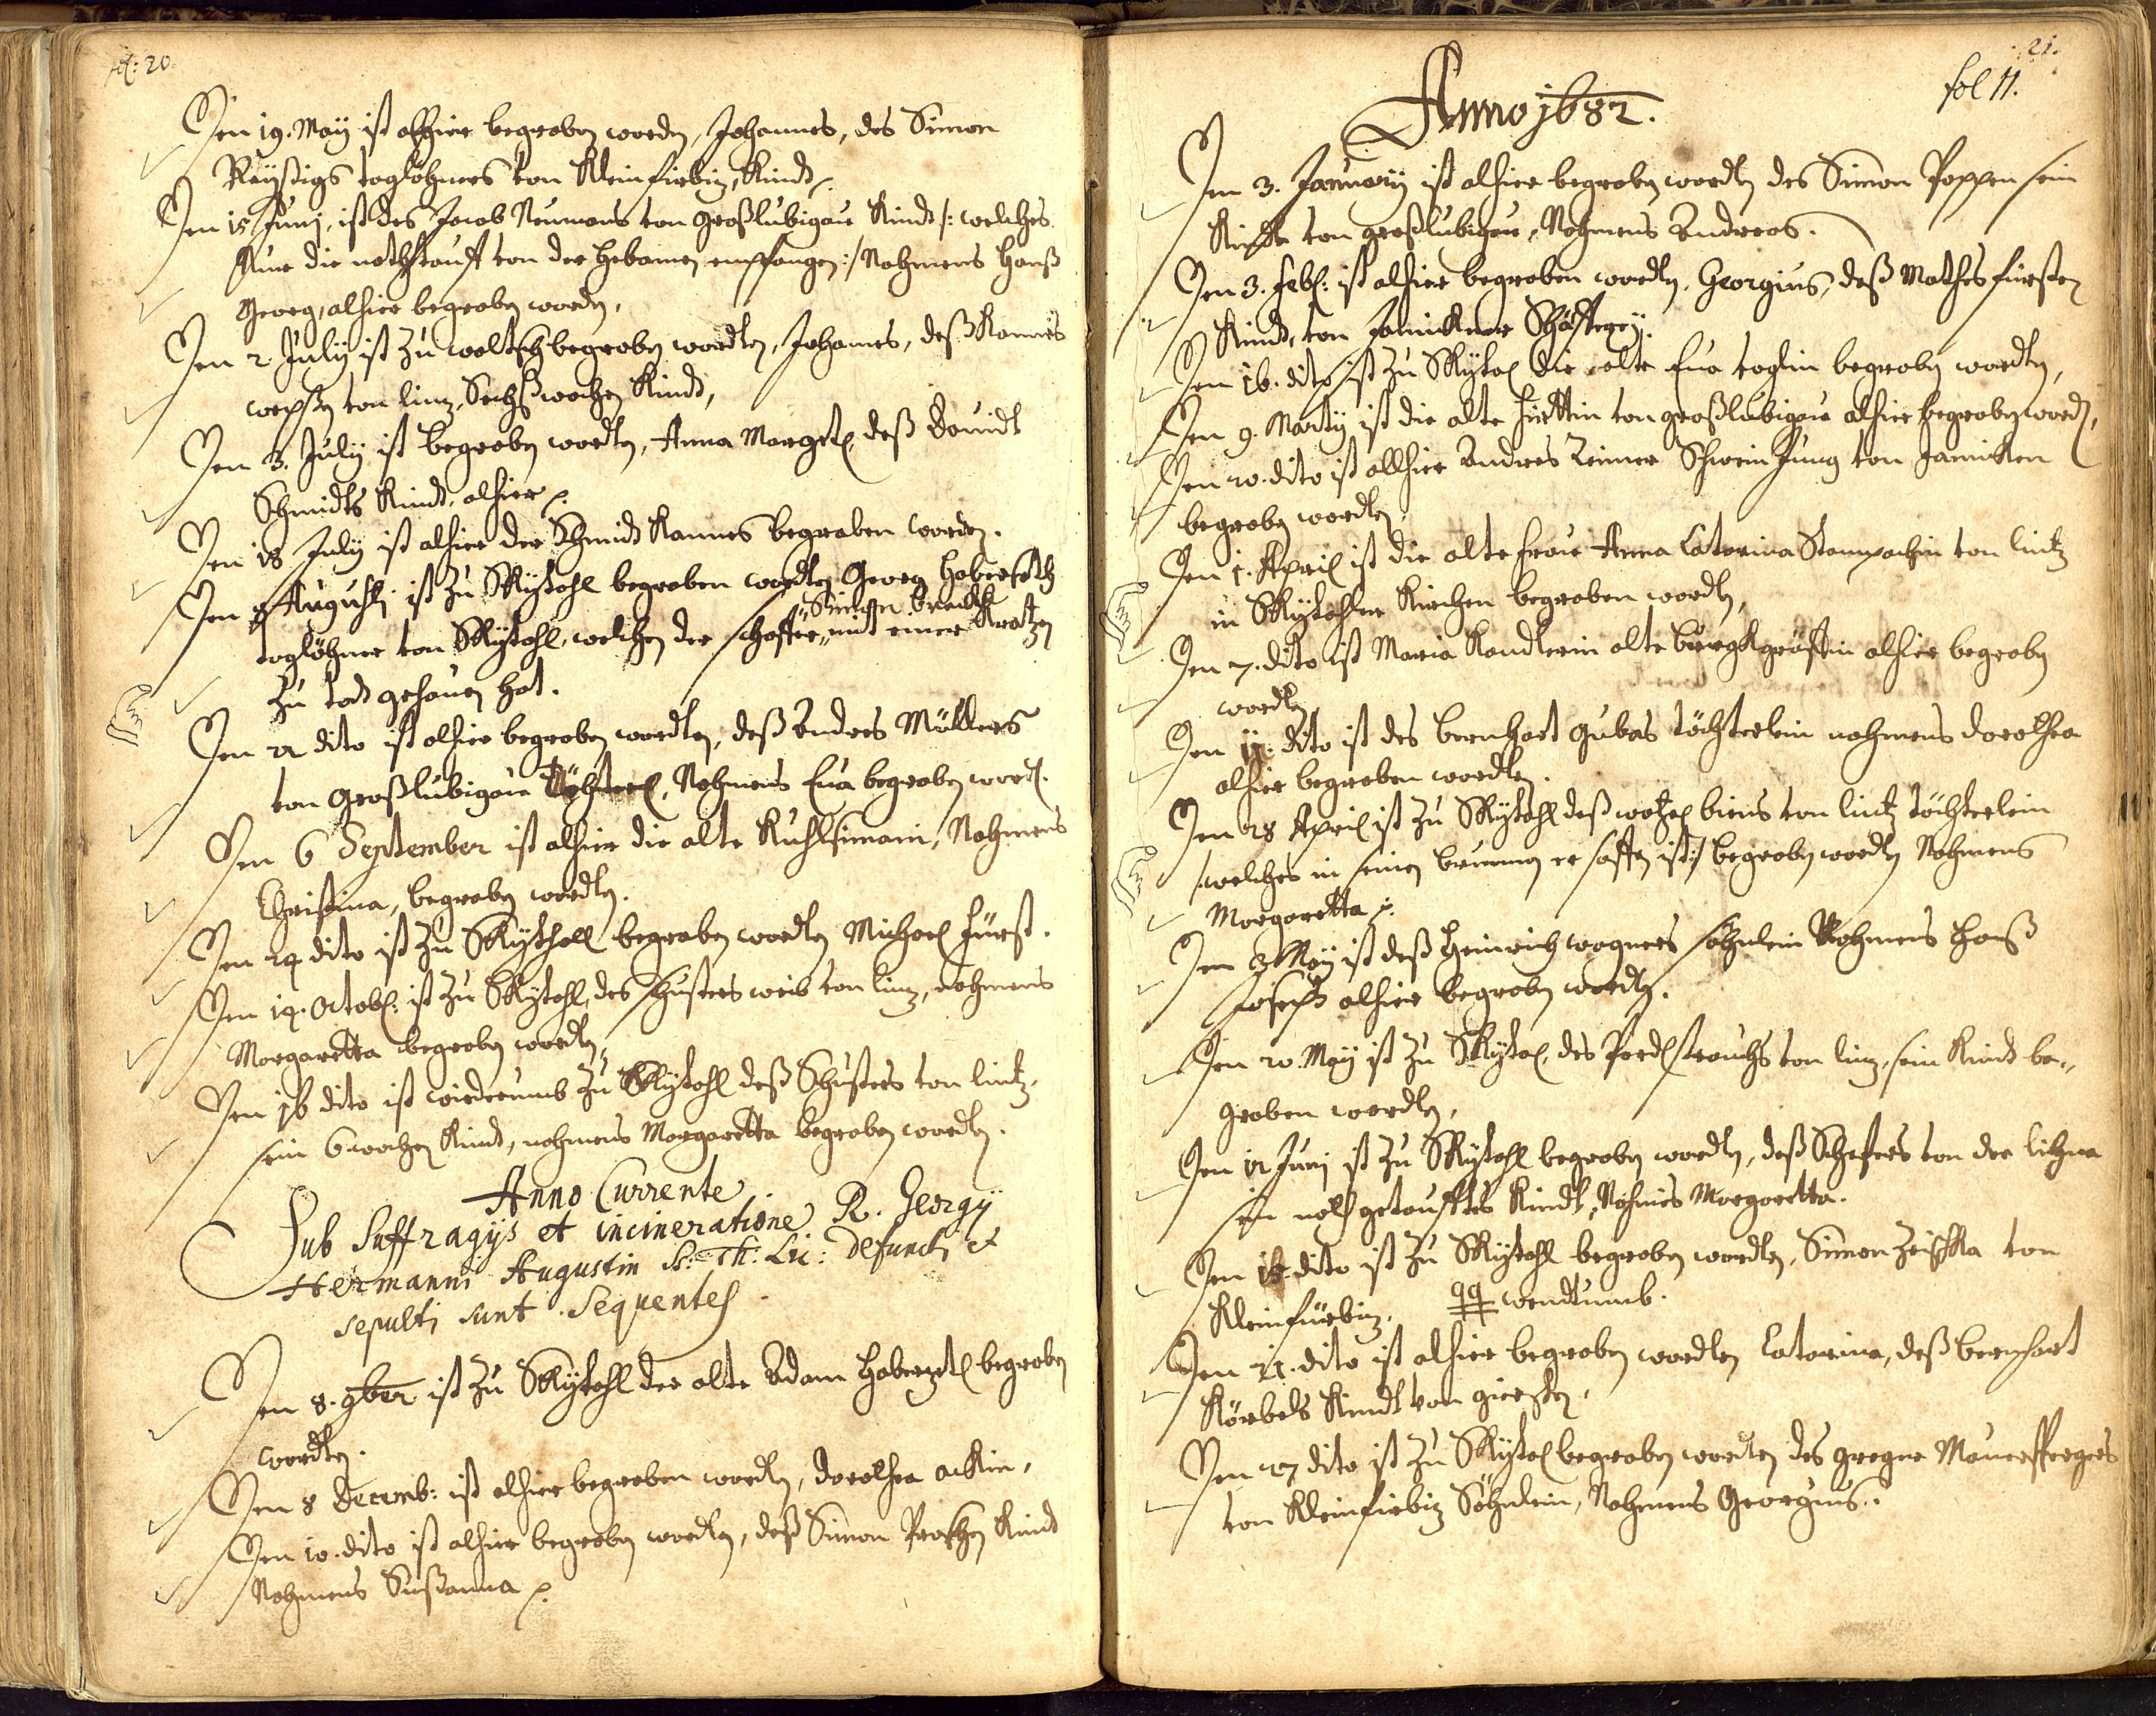 fol: 20.
Den 19. Maÿ ist alhier begraben worden, Johannes, des Simon
Reÿßigs taglöhners von Kleinfirbiz, Kindt
Den 15 Junj, ist des Jacob Neumans von Großlubigau Kindt /: welches
Nur die nothtauff von der hebamen empfangen :/ Nahmens Hanß
Georg, alhier begraben worden,
Den 2 Julÿ ist zu woltsch begraben worden, Johannes, deß Hannes
von linz, Sechßwochen Kindt,
Den 3. Julÿ ist begraben worden, Anna Margeth, deß Davidt
Schmidts Kindt, alhier
Den 18 Julÿ ist alhier der Schmidt Hannes begraben worden.
Den 9 Augustj ist zu Skÿtahl begraben worden Georg Haberseth
Simon
taglöhner von Skÿtahl, welchen der schaffer, mit einer Kratzen
zu todt gehauen hat.
Den 22 dito ist alhier begraben worden, deß Endres Müllers
von Großlubigau Töchterl, Nahmens Eua begraben word.
Den 6 September ist alhier die alte Kuhlsimain, Nahmens
Christina, begraben worden.
Den 24 dito ist zu Skÿthall begraben worden Michael Fürst.
Den 14. Octob: ist zu Skÿtahl, des schusters weib von linz, nahmens
Margaretta begraben worden,
Den 16 dito ist wiederumb zu Skÿtahl deß Schusters von lintz,
sein 6 wochen Kindt, nahmens Margaretta begraben worden.
Anno Currente
Sub Suffragijs et incineratione R. Georgÿ
Hermanni Augustin Ss: Th: Lic: defuncti et
sepulti sunt Sequentes.
Den 8. 9ber ist zu Skÿtahl der alte Adam Haberzetl begraben
worden.
Den 8 Decemb: ist alhier begraben worden, Dorothea ackin,
Den 10. dito ist alhier begraben worden, deß Simon Kindt
Nahmens Sußanna
21.
fol 11.
Anno 1682.
Den 3. Januarÿ ist alhier begraben worden des Simon Poppen sein
Kindt von großlubigau, Nahmens Andreas.
Den 3. Feb: ist alhier begraben worden, Georgius, deß Mathes fürsten
Kindt, von Janickner Schäfferey.
Den 16. dito ist zu Skÿtal die alte Eua voglin begraben worden,
Den 9. Martÿ ist die alte hirttin von großlubigau alhier begraben word,
Den 20. dito ist allhier Andres Zeiner Schwein Jung von Janicken
begraben worden.
Den 1. April ist die alte frau Anna Catarina Stampachin von lintz
in Skÿtahler Kirchen begraben worden,
Den 7. dito ist Maria Kandlerin alte burgkgräffin alhier begraben
worden
Den 11. dito ist des bernhart gubas töchterlein nahmens dorothea
alhier begraben worden.
Den 28 April ist zu Skÿtahl deß von lintz töchterlein
/: welches in einen brunnen ersoffen ist :/ begraben worden Nahmens
Margaretta
Den 3 Maÿ ist deß Heinrich wagners söhnlein Nahmens Hanß
Joseph alhier begraben worden.
Den 20. Maÿ ist zu Skÿtal, des von linz, sein Kindt be-
graben worden,
Den 12 Junj ist zu Skÿtahl begraben worden, deß Schefers von der
ein noth getaufftes Kindt, Nahmens Margaretta.
Den 18. dito ist zu Skÿtahl begraben worden, Simon von
Kleinfürbiz, wendtumb.
Den 21. dito ist alhier begraben worden Catarina, deß bernhart
Körbels Kindt von gießen,
Den 27 dito ist zu Skÿtal begraben worden des
von Kleinfirbiz Söhnlein, Nahmens Georgius.